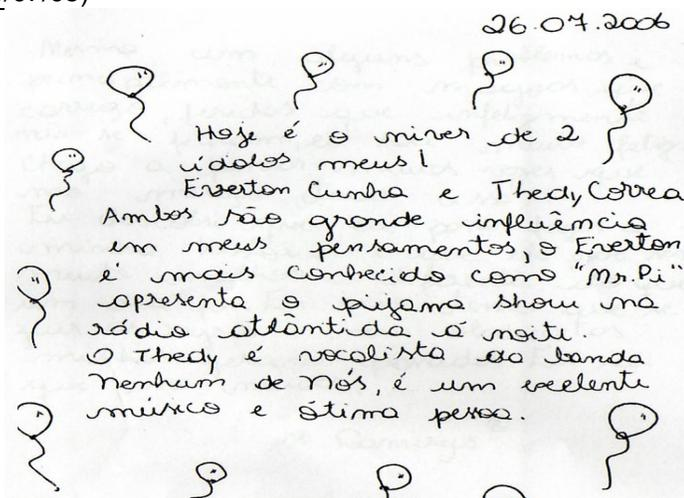 26.07.2006
Hoje é o niver de 2
ídolos meus!
Everton Cunha e Thedy Correa
Ambos são grande influência
em meus pensamentos, o Everton
é mais conhecido como "Mr. Pi"
apresenta o pijama show na
rádio atlântida à noite.
O Thedy é vocalista da banda
Nenhum de Nós, é um ecelente
músico e ótima pessoa.